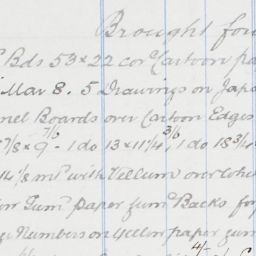 Brought for
Bds 53 x 22 cor Cartoon pa
Mar 8. 5 Drawings on Japa
nel Boards over Carton Edges
7/8 x 9 7/8 - 1 do 13 x 11 1/4 3/6, 1 do 18 3/4
14 1/8 mtd with Vellum over whi
Gum'd paper gum'd Backs for
Numbers on yellow paper gum
4/-